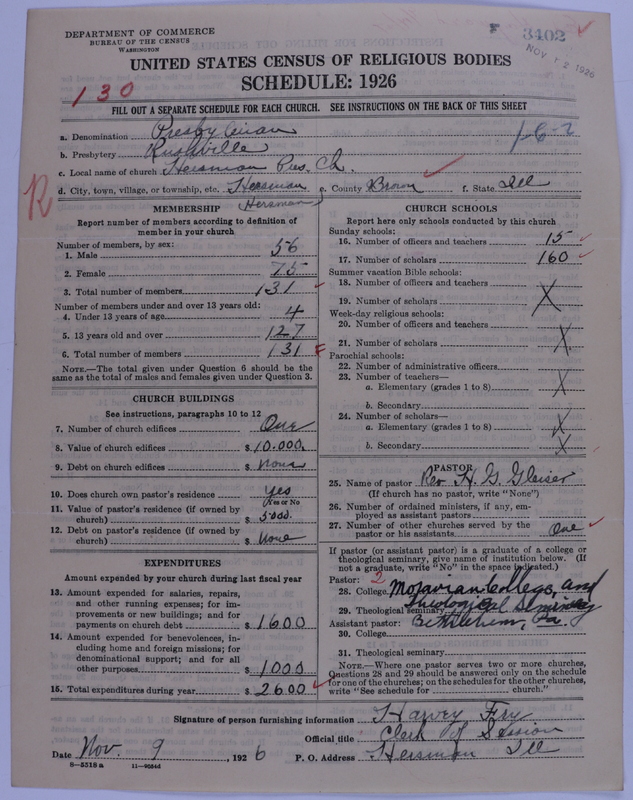 DEPARTMENT OF COMMERCE
BUREAU OF THE CENSUS
WASHINGTON
3402
NOV 12 1926
UNITED STATES CENSUS OF RELIGIOUS BODIES
SCHEDULE: 1926
130
FILL OUT A SEPARATE SCHEDULE FOR EACH CHURCH. SEE INSTRUCTIONS ON THE BACK OF THIS SHEET
a. Denomination Presbyterian
1-6-2
b. Presbytery Rushville
c. Local name of church Hersman Pres. Ch.
d. City, town, village, or township, etc. Hersman e. County Brown f. State Ill
R
Hersman
MEMBERSHIP
Report number of members according to definition of
member in your church
Number of members, by sex:
1. Male 56
2. Female 75
3. Total number of members 131
Number of members under and over 13 years old:
4. Under 13 years of age 4
5. 13 years old and over 127
6. Total number of members 131
NOTE.—The total given under Question 6 should be
same as the total of males and females given under Question 3.
CHURCH BUILDINGS
See instructions, paragraphs 10 to 12
7. Number of church edifices One
8. Value of church edifices $ 10.000.
9. Debt on church edifices $ None
10. Does church own pastor's residence yes
(Yes or No)
11. Value of pastor's residence (if owned by
church) $ 5000.
12. Debt on pastor's residence (if owned by
church) $ None
EXPENDITURES
Amount expended by your church during last fiscal year
13. Amount expended for salaries, repairs,
and other running expenses; for im-
provements or new buildings; and for
payments on church debt $ 1600
14. Amount expended for benevolences, in-
cluding home and foreign missions; for
denominational support; and for all
other purposes $ 1000
15. Total expenditures during year $ 2600
CHURCH SCHOOLS
Report here only schools conducted by this church
Sunday schools:
16. Number of officers and teachers 15
17. Number of scholars 160
Summer vacation Bible schools:
18. Number of officers and teachers
19. Number of scholars X
Week-day religious schools:
20. Number of officers and teachers
21. Number of scholars X
Parochial schools:
22. Number of administrative officers
23. Number of teachers—
a. Elementary (grades 1 to 8) X
b. Secondary
24. Number of scholars—
a. Elementary (grades 1 to 8) X
b. Secondary X
PASTOR
25. Name of pastor Rev H. G. Gleiser
(If church has no pastor, write "None")
26. Number of ordained ministers, if any, em-
ployed as assistant pastors
27. Number of other churches served by the
pastor or his assistants One
If pastor (or assistant pastor) is a graduate of a college or
theological seminary, give name of institution below. (If
not a graduate, write "No" in the space indicated.)
Pastor: 2
28. College Moravian College, and
29. Theological seminary Theological Seminary
Assistant pastor: Bethlehem, Pa.
30. College
31. Theological seminary
NOTE.—Where one pastor serves two or more churches,
Questions 28 and 29 should be answered only on the schedule
for one of the churches; on the schedules for the other churches,
write "See schedule for church."
Signature of person furnishing information Harvey Fry
Official title Clerk of Session
Date Nov. 9, 1926 P. O. Address Hersman Ill
8—5318a